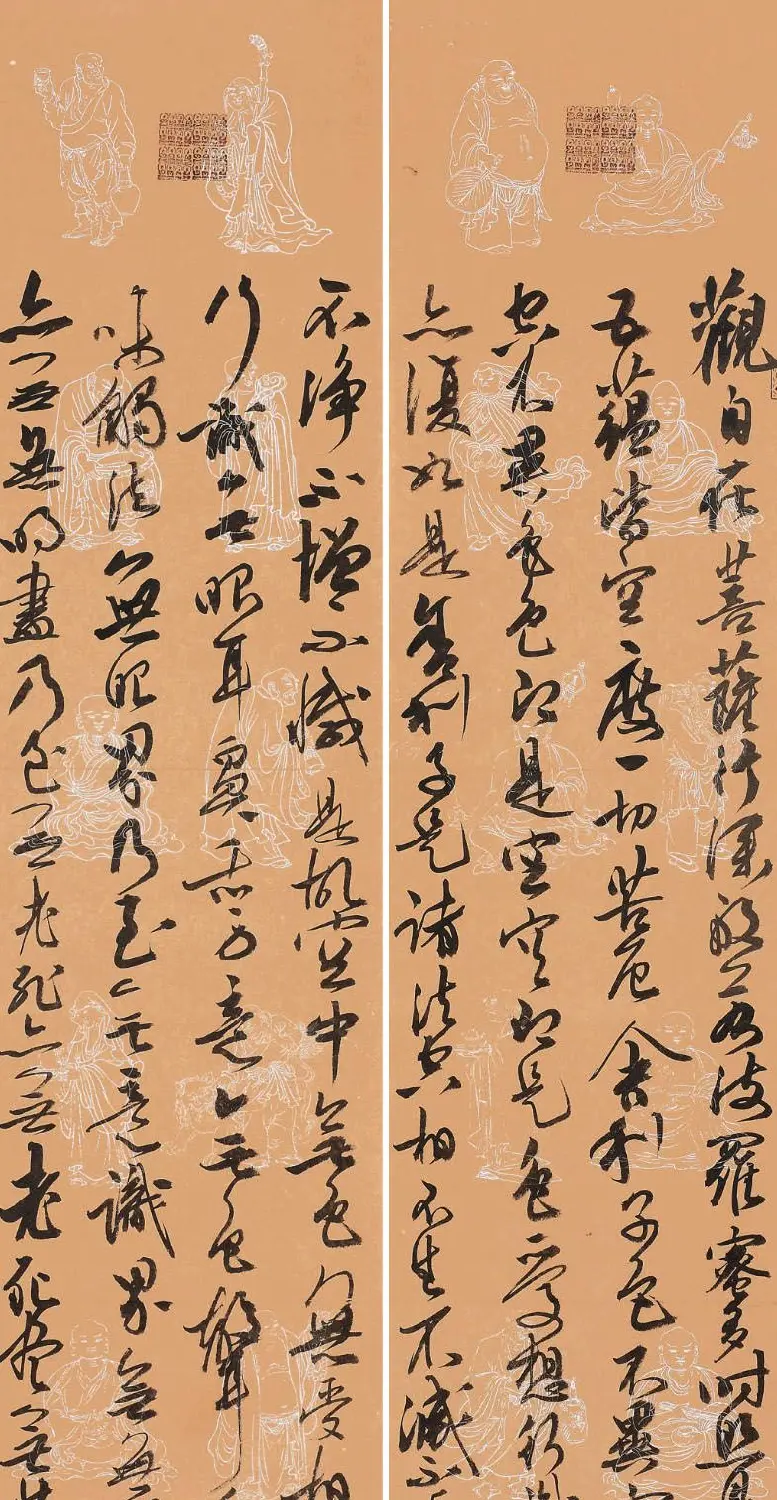 觀自在菩薩行深般若波羅蜜多時照見
五蘊皆空度一切苦厄舍利子色不異空
空不異色色即是空空即是色受想行識
亦復如是舍利子是諸法空相不生不滅不
不淨不增不減是故空中無色無受想
行識無眼耳鼻舌身意無色聲
味觸法無眼界乃至無意識界無無
亦無無明盡乃至無老死亦無老死盡無苦